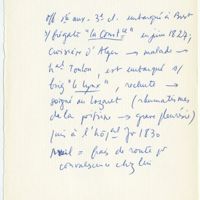 off. 1ère aux. 3e cl. embarqué à Brest
s/ frégate "la Constce" en juin 1827,
croisière d'Alger → malade →
hal Toulon, est embarqué s/
brig "le Lynx", rechute →
soigné au lazaret (rhumatismes
de la poitrine → grave pleurésie)
puis à l'hôpal Jr 1830
= frais de route pr
convalescence chez lui